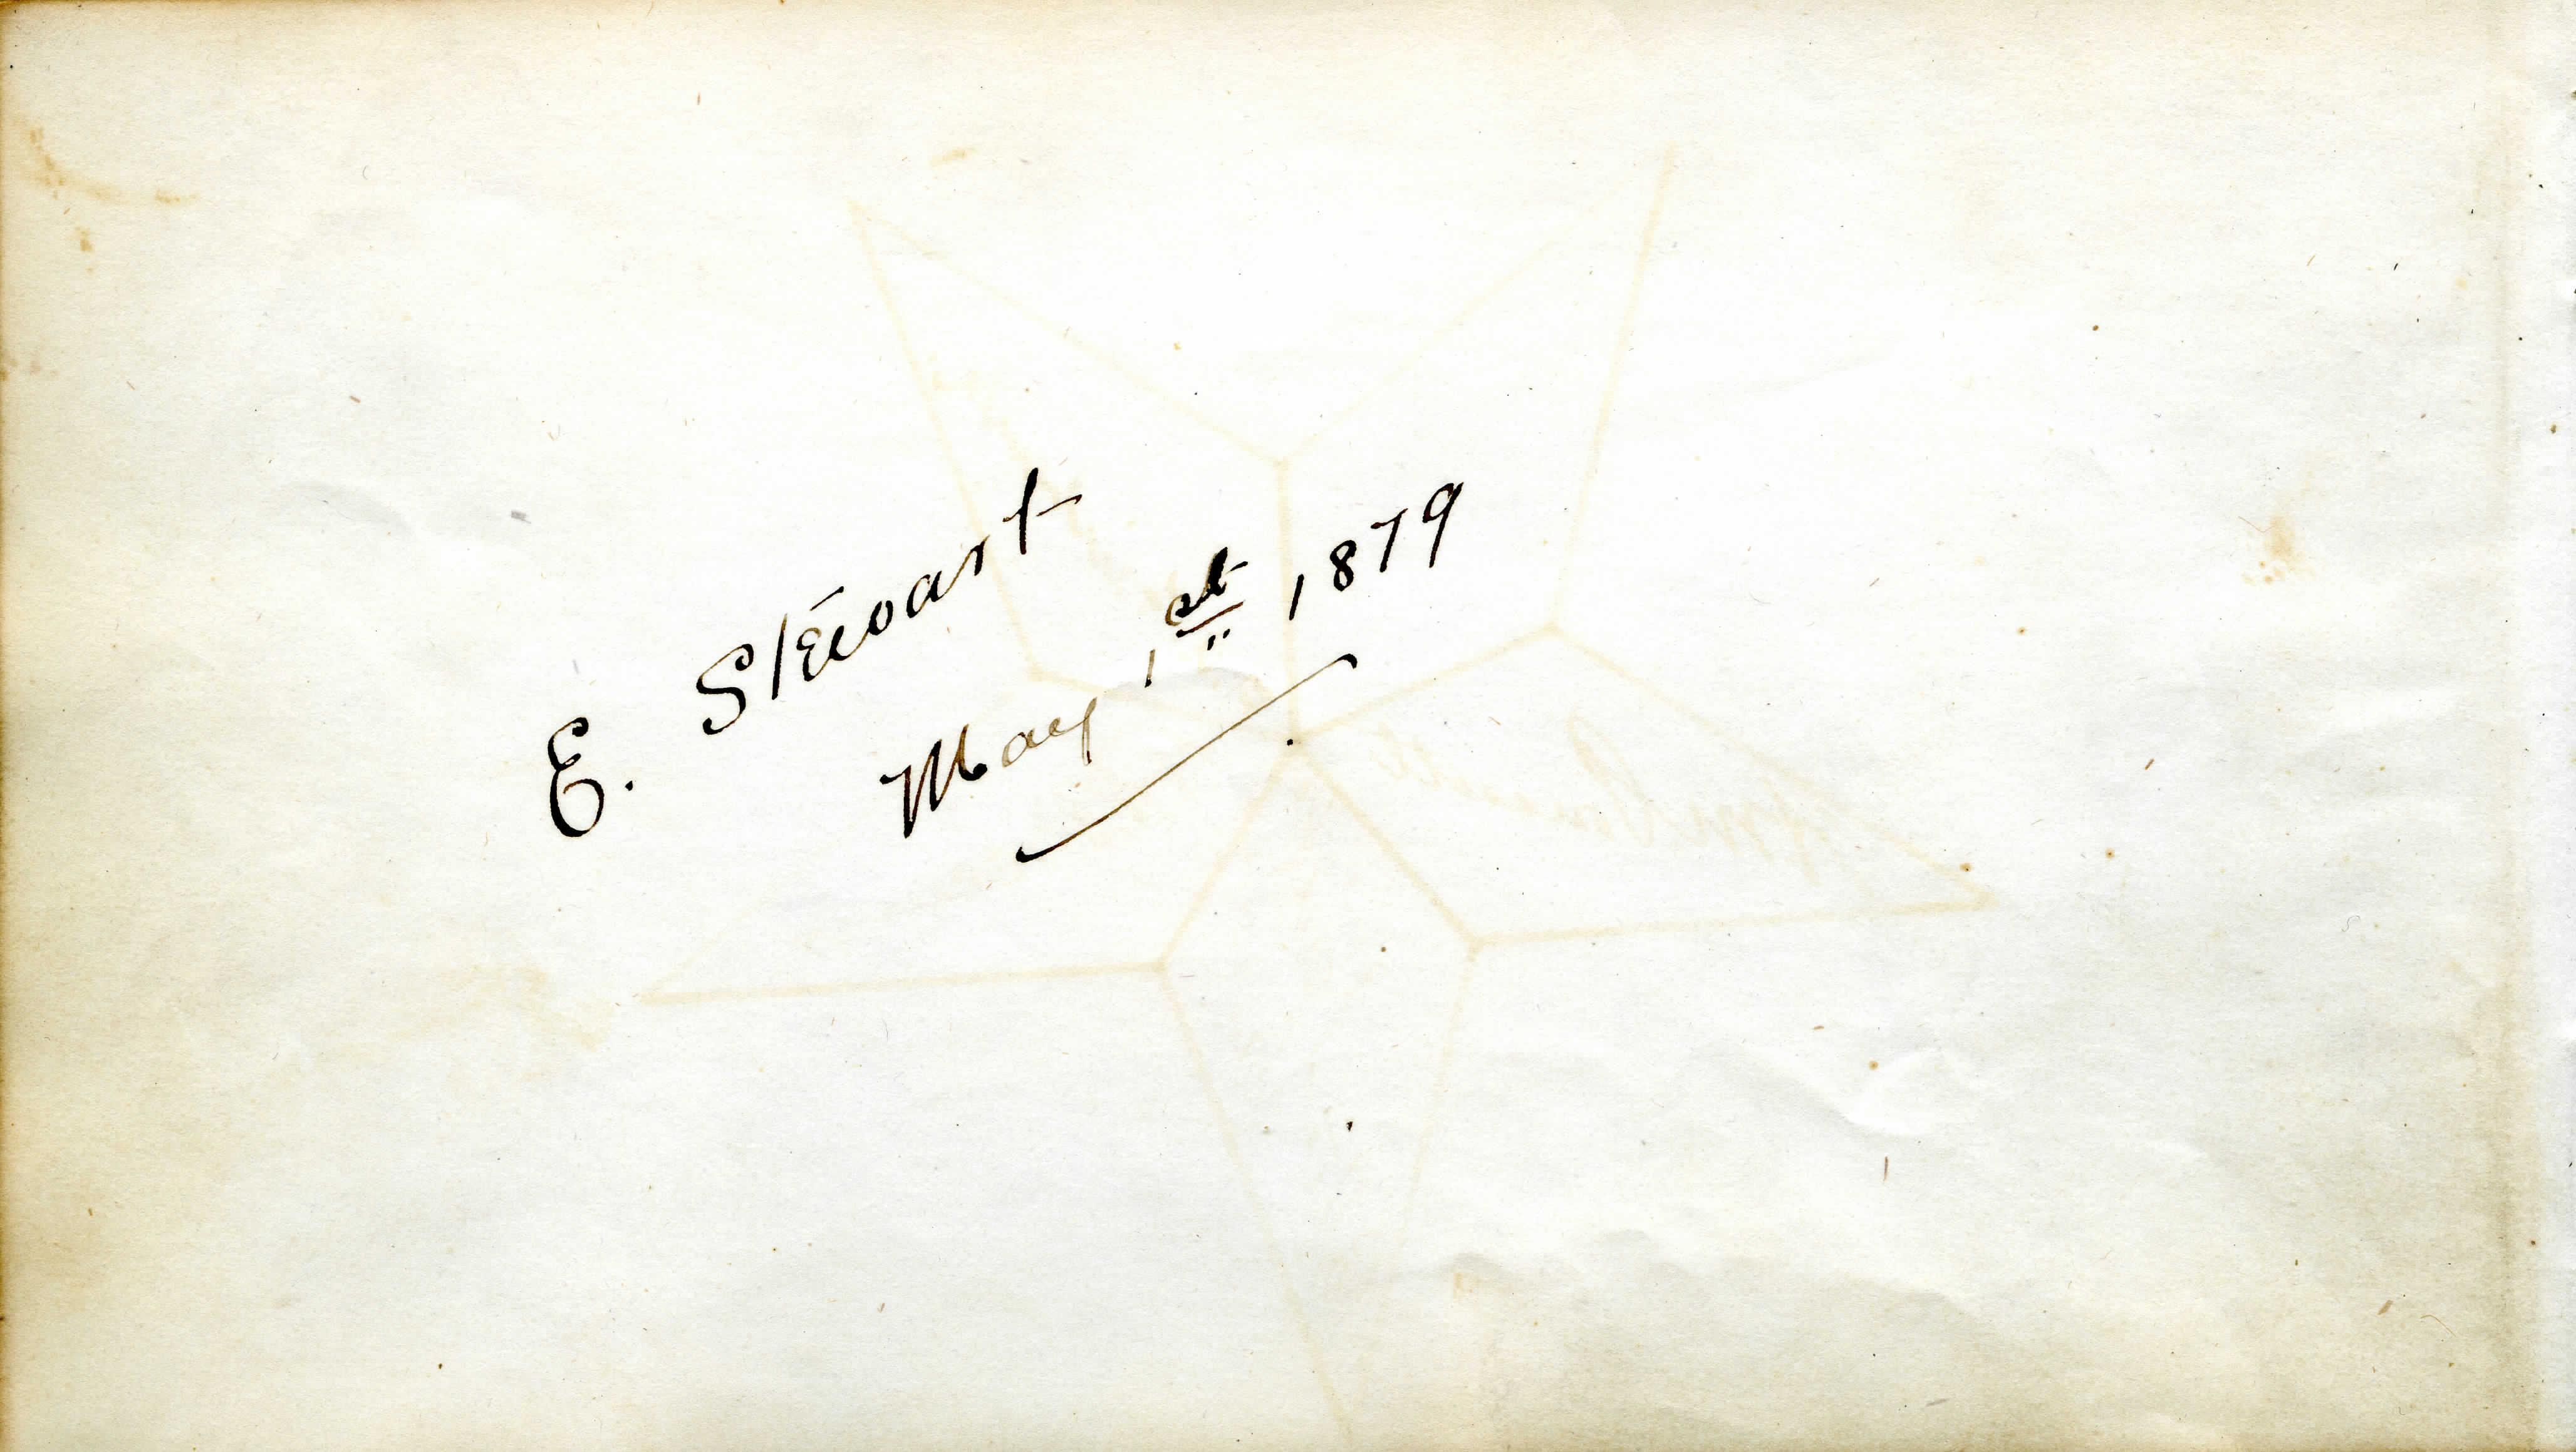 E. Stewart
May 1st 1879